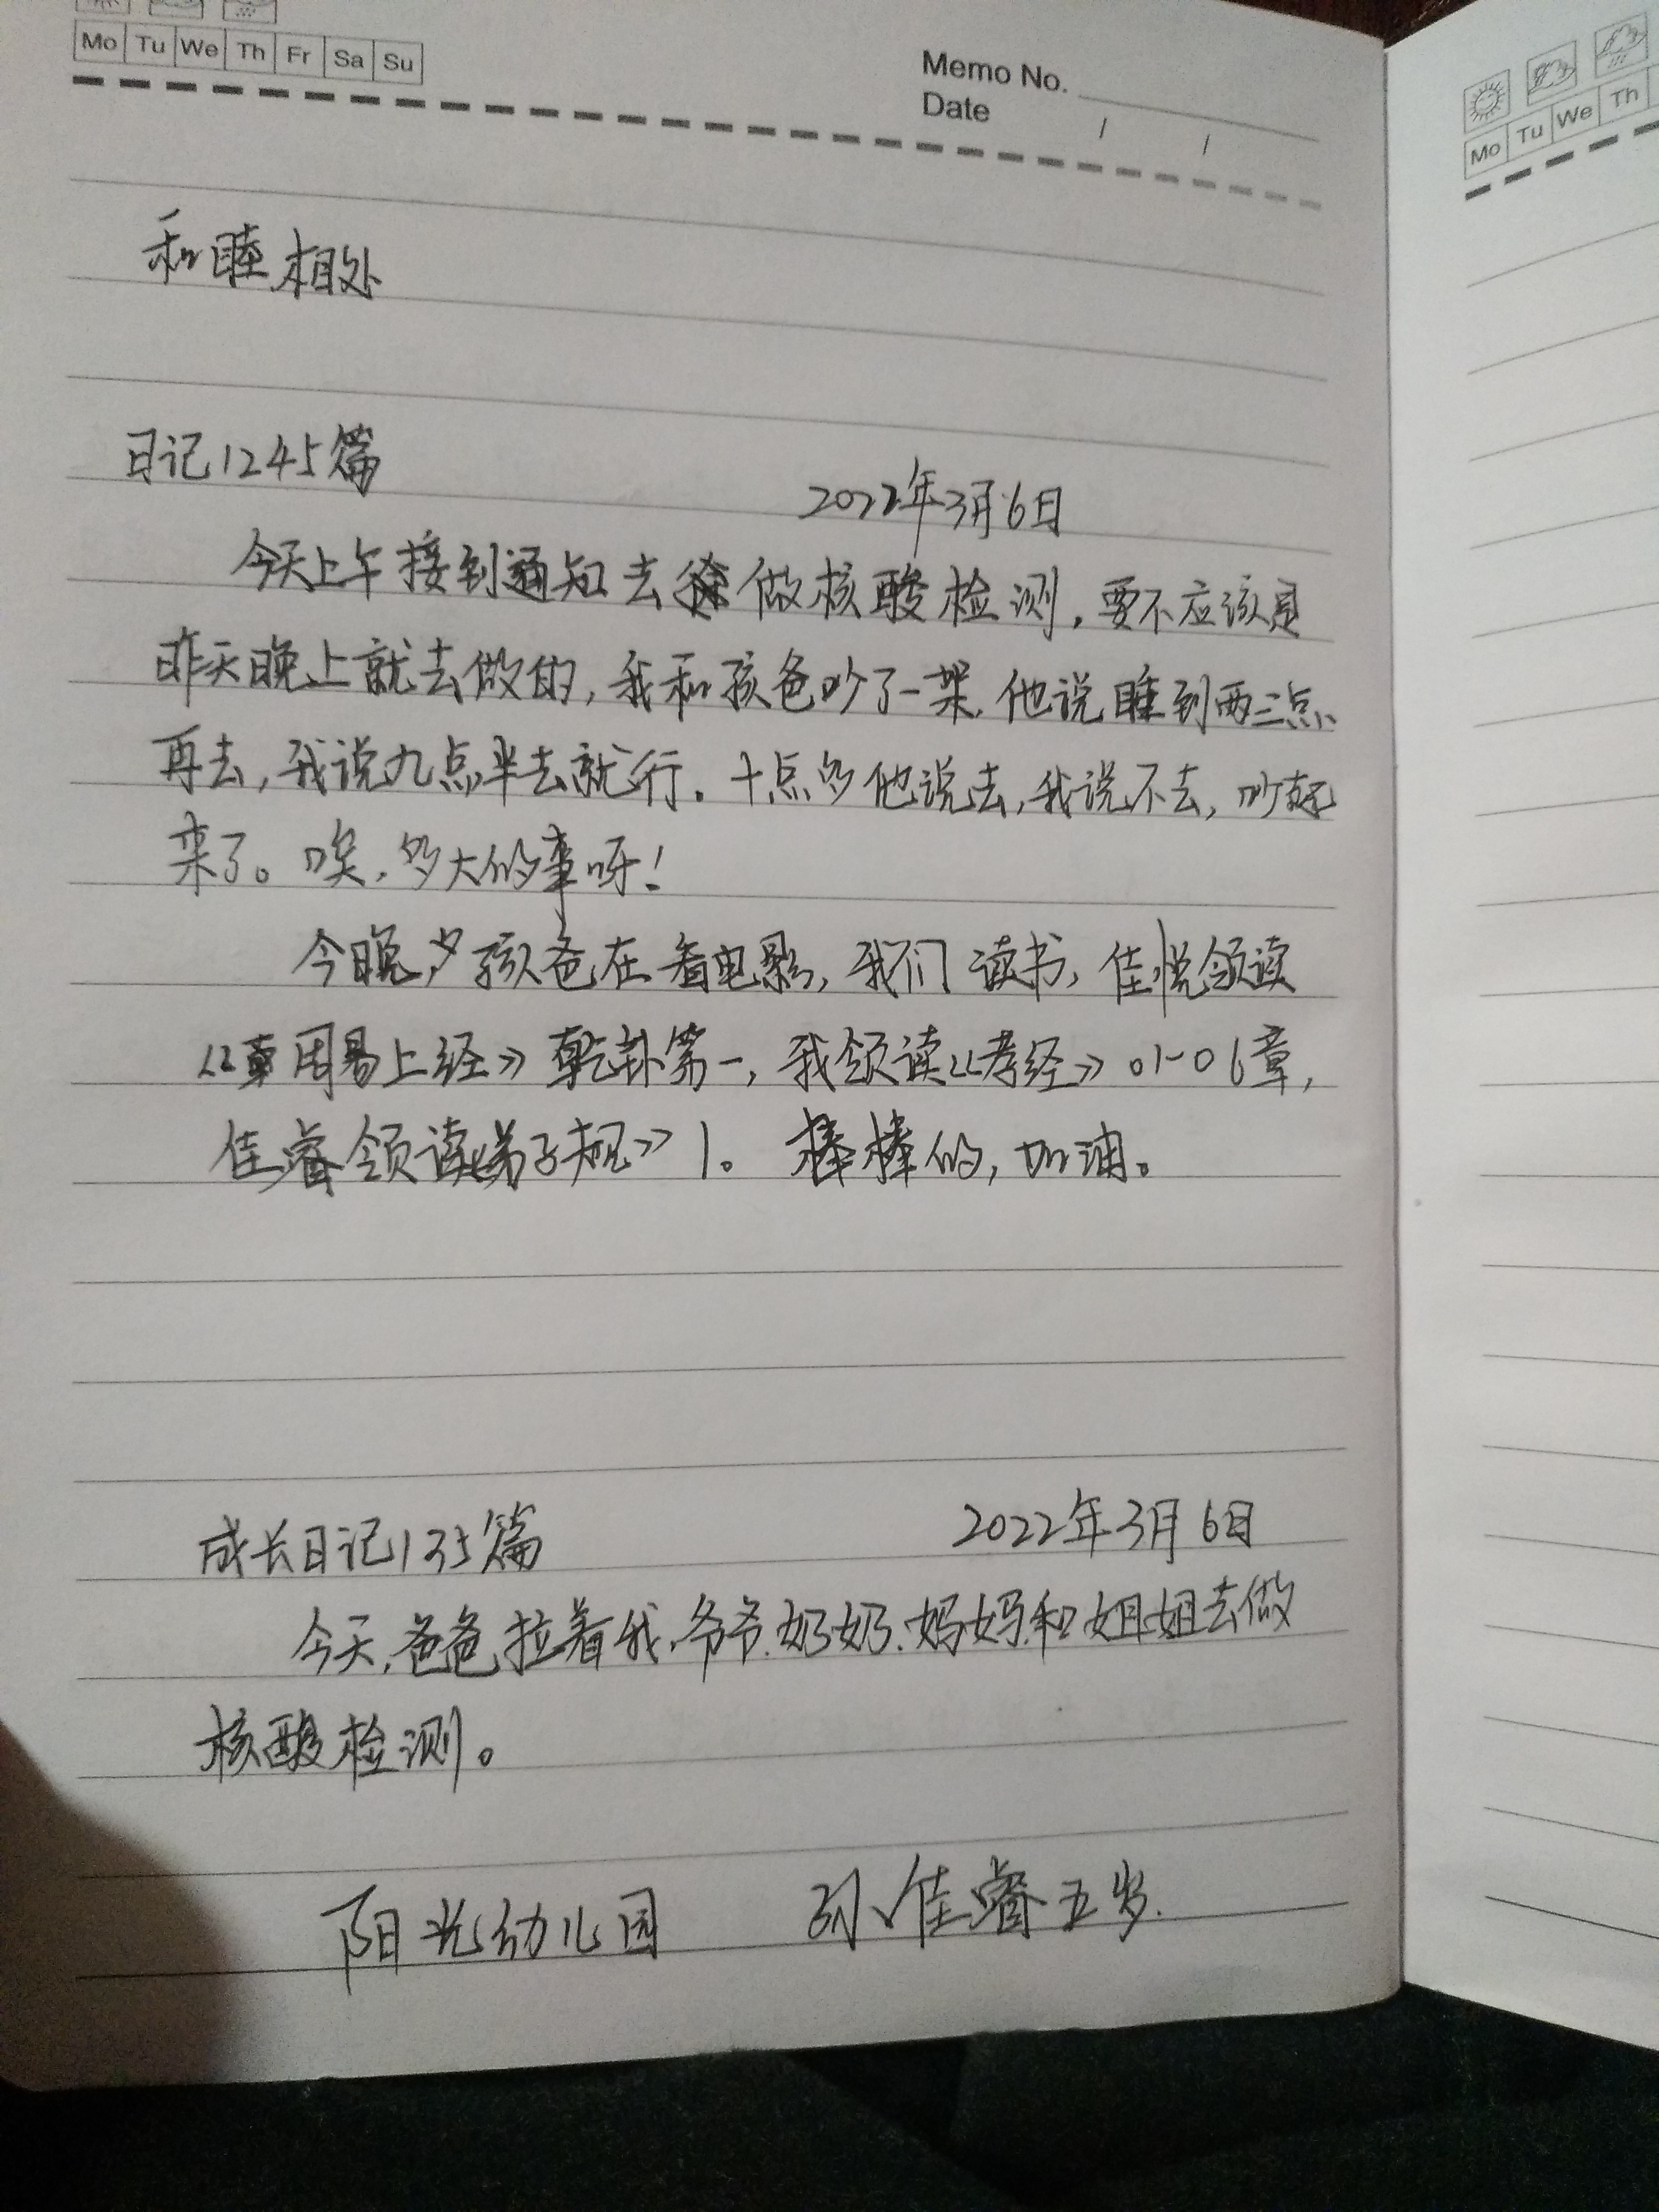 Mo Tu We Th Fr Sa Su
Memo No.
Date / /
和睦相处
日记1245篇
2022年3月6日
今天上午接到通知去做核酸检测,要不应该是
昨天晚上就去做的,我和孩爸吵了一架.他说睡到两三点
再去,我说九点半去就行。十点多他说去,我说不去,吵起
来了。唉,多大的事呀!
今晚,孩爸在看电影,我们读书,佳悦领读
《周易上经》乾卦第一,我领读《孝经》01-06章,
佳睿领读《弟子规》1。棒棒的,加油。
成长日记135篇
2022年3月6日
今天,爸爸拉着我.爷爷.奶奶.妈妈和姐姐去做
核酸检测。
阳光幼儿园 孙佳睿五岁.
Mo Tu We Th